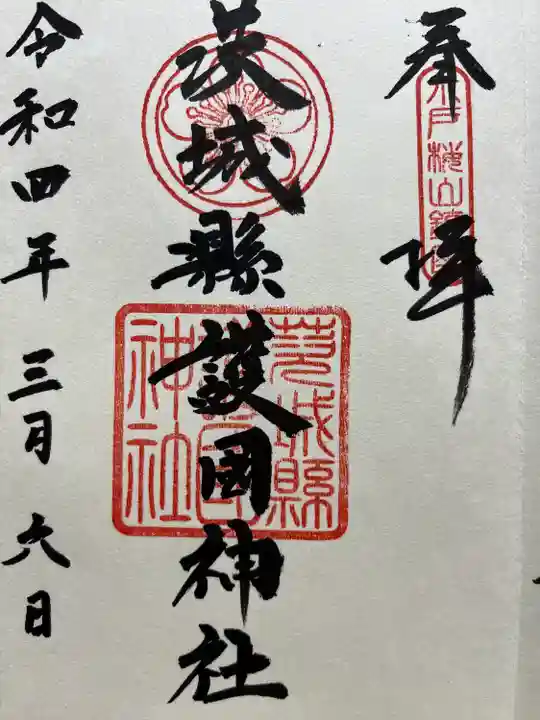 奉拝
水戸桜山鎮座
茨城縣護國神社
茨城縣護國神社
令和四年三月六日